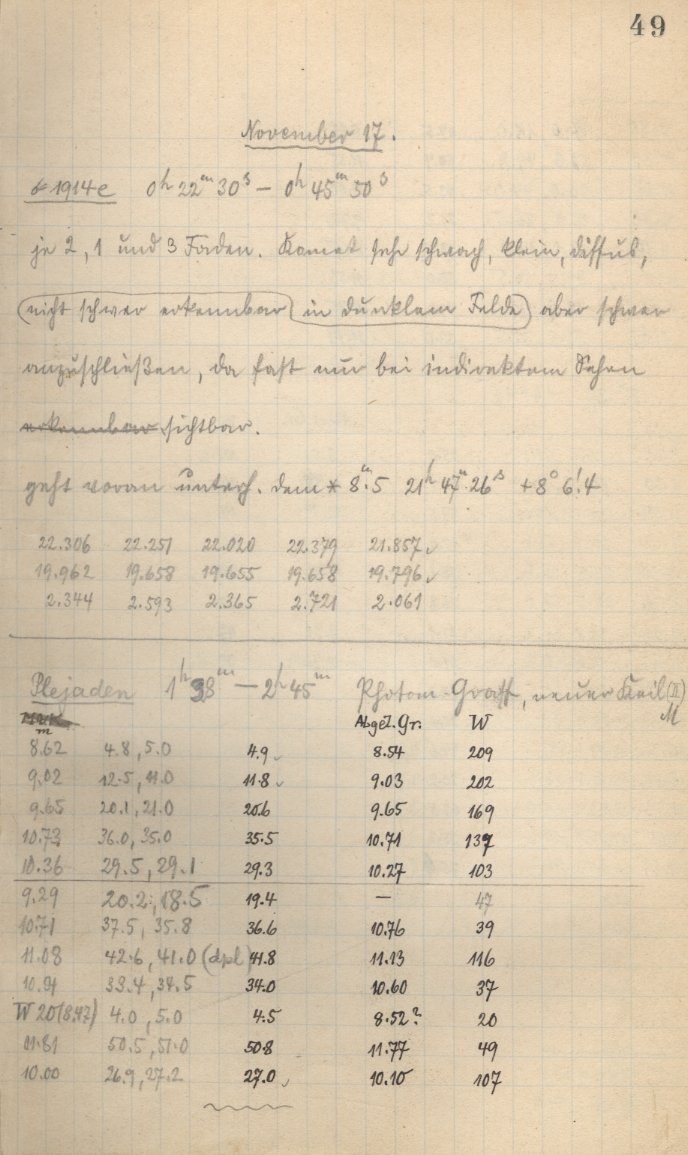 49
November 17.
1914e 0h 22m 30s – 0h 45m 50s
je 2, 1 und 3 Faden. Komet sehr schwach, klein, diffus,
(nicht schwer erkennbar) (in dunklem Felde) aber schwer
anzuschließen, da fast nur bei indirektem Sehen
erkennbar sichtbar.
geht voran dem * 8m.5 21h 47m 26s +8° 6!4
22.306 22.251 22.020 22.379 21.857
19.962 19.658 19.655 19.658 19.796
2.344 2.593 2.365 2.721 2.061
Plejaden 1h 38m – 2h 45m Photom Graff, neuer Keil (II)
M
m Abgel. Gr. W
8.62 4.8, 5.0 4.9 8.54 209
9.02 12.5, 11.0 11.8 9.03 202
9.65 20.1, 21.0 20.6 9.65 169
10.73 36.0, 35.0 35.5 10.71 137
10.36 29.5, 29.1 29.3 10.27 103
9.29 20.2:, 18.5 19.4 — 47
10.71 37.5, 35.8 36.6 10.76 39
11.08 42.6, 41.0 (dpl) 41.8 11.13 116
34.5 34.0 10.60 37
W 20 (8.42) 4.0, 5.0 4.5 8.52? 20
11.81 50.5, 51.0 50.8 11.77 49
10.00 26.9, 27.2 27.0 10.10 107